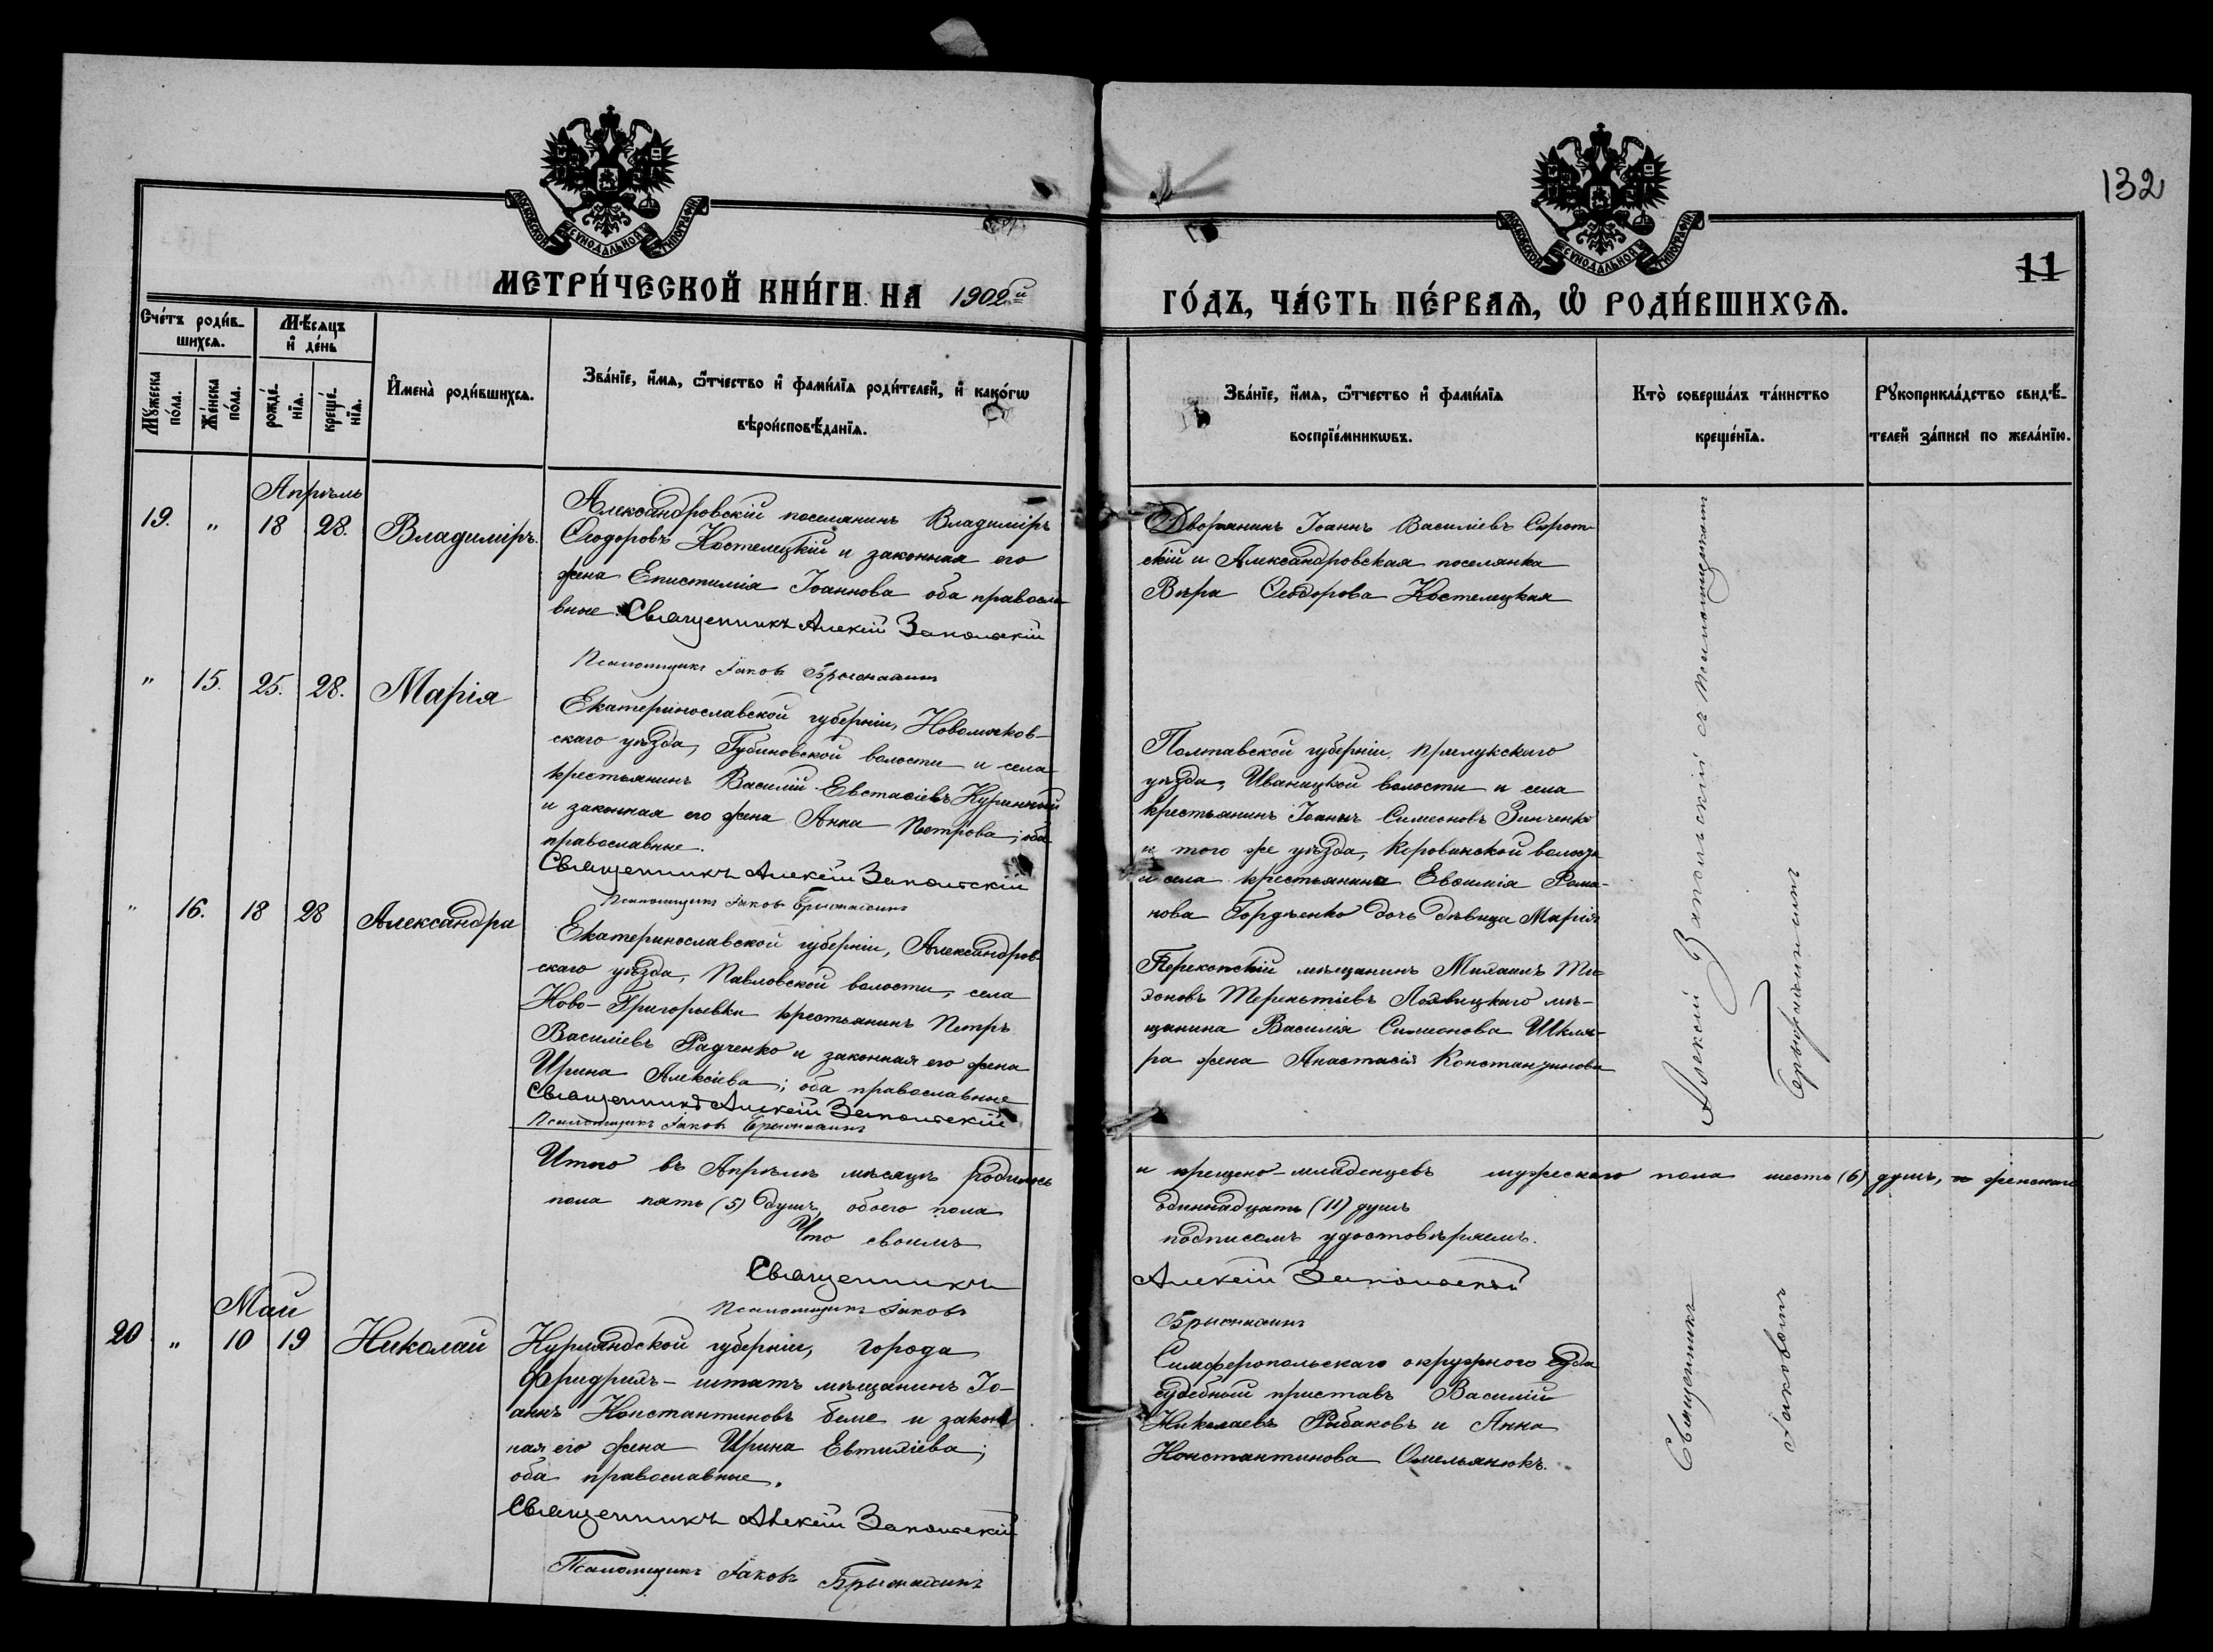 132
11
МОСКОВСКОЙ СѴНОДАЛЬНОЙ ТИПОГРАФІИ
МОСКОВСКОЙ СѴНОДАЛЬНОЙ ТИПОГРАФІИ
МЕТРИ́ЧЕСКОЙ КНИ́ГИ НА 1902й
ГО́ДЪ, ЧА́СТЬ ПЕ́РВАѦ, Ѿ РОДИ́ВШИХСѦ.
Сче́тъ роди́в-
шихсѧ.
Мѣ́сѧцъ
и҆ де́нь
Мꙋ́жеска
по́ла.
Же́нска
по́ла.
рожде́-
нїѧ.
креще́-
нїѧ.
И҆мена̀ роди́вшихсѧ.
Зва́нїе, и҆́мѧ, ѻ҆́тчество и҆ фами́лїѧ роди́телей, и҆ како́гѡ
вѣроисповѣ́данїѧ.
Зва́нїе, и҆́мѧ, ѻ҆́тчество и҆ фами́лїѧ
воспрїе́мникѡвъ.
Кто̀ соверша́лъ та́инство
креще́нїѧ.
Рꙋкоприкла́дство свидѣ́-
телей за́писи по жела́нїю.
Апрѣль
19. " 18 28. Владиміръ.
Александровскій поселянинъ Владиміръ
Ѳеодоровъ Костелецкій и законная его
жена Епистимія Іоаннова оба правосла-
вные. Священникъ Алексій Запольскій
Псаломщикъ Іаковъ
Дворянинъ Іоаннъ Василіевъ Сирот-
скій и Александровская поселянка
Вѣра Ѳеодорова Костелецкая
" 15. 25. 28. Марія
Екатеринославской губерніи, Новомосков-
скаго уѣзда, Губиновской волости и села
крестьянинъ Василій Евстаѳіевъ Куринный
и законная его жена Анна Петрова; оба
православные.
Священникъ Алексій Запольскій
Псаломщикъ Іаковъ
Полтавской губерніи, Прилукскаго
уѣзда, Иваницкой волости и села
крестьянинъ Іоаннъ Симеоновъ Зинченко
и того же уѣзда, волости
и села крестьянина Евѳимія Рома-
нова Гордѣенко дочь дѣвица Марія
" 16. 18 28 Александра
Екатеринославской губерніи, Александров-
скаго уѣзда, Павловской волости, села
Ново-Григорьевки крестьянинъ Петръ
Василіевъ Радченко и законная его жена
Ирина Алексіева; оба православные
Священникъ Алексій Запольскій
Псаломщикъ Іаковъ
Перекопскій мѣщанинъ Михаилъ Ти-
хоновъ Терентіевъ мѣ-
щанина Василія Симеонова Шкля-
ра жена Анастасія Константинова
Алексій Запольскій съ Псаломщикомъ
Итого въ Апрѣлѣ мѣсяцѣ родилось
и крещено младенцевъ мужескаго пола шесть (6) душъ, женскаго
пола пять (5) душъ, обоего пола
одиннадцать (11) душъ
Что своимъ
подписомъ удостовѣряемъ.
Священникъ
Алексій Запольскій
Псаломщикъ Іаковъ
Май
20 " 10 19 Николай
Курляндской губерніи, города
Фридрихъ-штатъ мѣщанинъ Іо-
аннъ Константиновъ Беме и закон-
ная его жена Ирина Евтихіева;
оба православные.
Священникъ Алексій Запольскій
Псаломщикъ Іаковъ
Симферопольскаго окружного суда
судебный приставъ Василій
Николаевъ Рыбаковъ и Анна
Константинова Омельянюкъ.
Священникъ
Іаковомъ